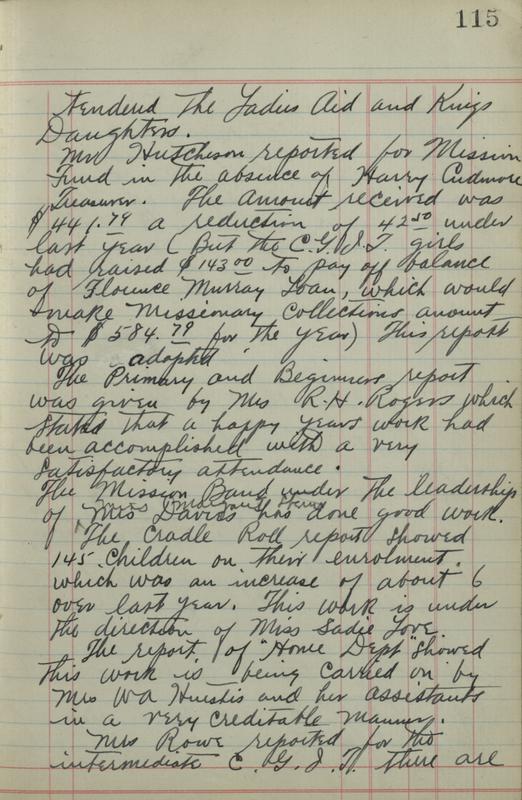 115
tendered the Ladies Aid and Kings
Daughters.
Mr Hutcheson reported for Mission
Fund in the absence of Harry Cudmore
Treasurer. The Amount received was
$441.79 a reduction of 42.50 under
last year (But the C.G.I.T. girls
had raised $143.00 to pay off balance
of Florence Murray Loan, which would
make Missionary Collections amount
to $584.79 for the year) This report
was adopted
The Primary and Beginners report
was given by Mrs R.H. Rogers which
stated that a happy years work had
been accomplished with a very
satisfactory attendance.
The Mission Band under the leadership
Miss Margaret
of Mrs Davies has done good work.
The Cradle Roll report showed
145 Children on their enrolment.
which was an increase of about 6
over last year. This work is under
the direction of Miss Sadie Love
The report of "Home Dept" showed
this work is being carried on by
Mrs W A Huestis and her assistants
in a very creditable manner.
Mrs Rowe reported for the
intermediate C.G.I.T. there are